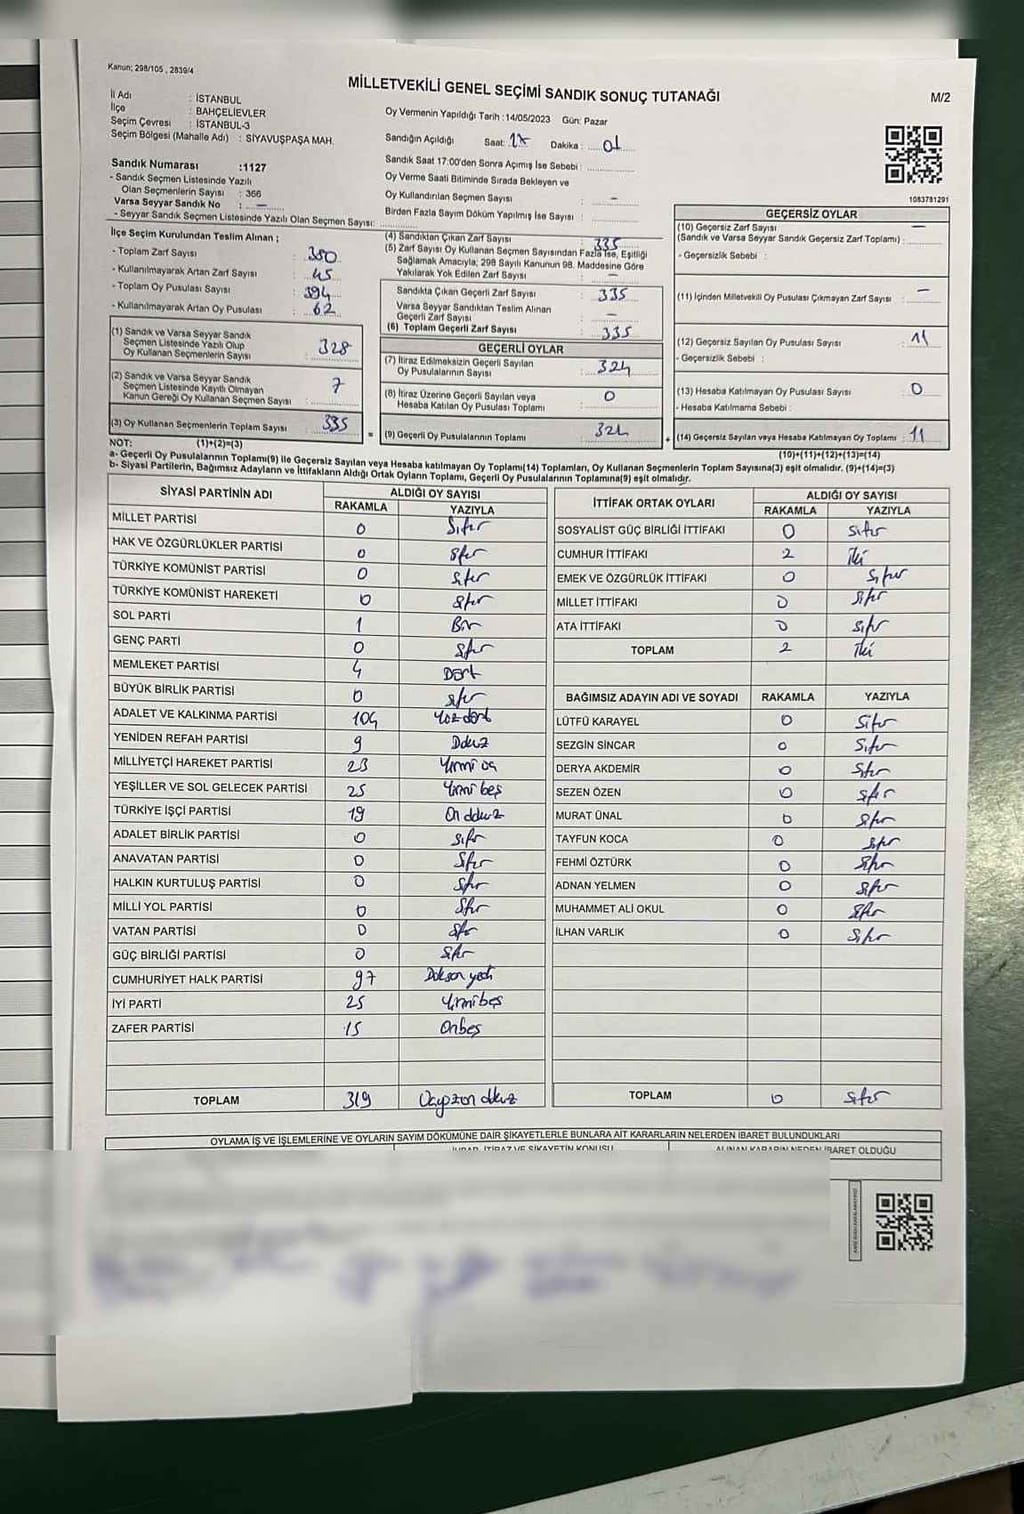 Kanun; 298/105 , 2839/4
MİLLETVEKİLİ GENEL SEÇİMİ SANDIK SONUÇ TUTANAĞI
M/2
İl Adı : İSTANBUL
İlçe : BAHÇELİEVLER
Seçim Çevresi : İSTANBUL-3
Seçim Bölgesi (Mahalle Adı) : SİYAVUŞPAŞA MAH.
Oy Vermenin Yapıldığı Tarih : 14/05/2023 Gün: Pazar
Sandığın Açıldığı Saat: 17 Dakika : 01
Sandık Saat 17:00'den Sonra Açımış İse Sebebi :
Oy Verme Saati Bitiminde Sırada Bekleyen ve
Oy Kullandırılan Seçmen Sayısı : -
Birden Fazla Sayım Döküm Yapılmış İse Sayısı :
Sandık Numarası :1127
- Sandık Seçmen Listesinde Yazılı
Olan Seçmenlerin Sayısı : 366
Varsa Seyyar Sandık No : -
- Seyyar Sandık Seçmen Listesinde Yazılı Olan Seçmen Sayısı:
1083781291
İlçe Seçim Kurulundan Teslim Alınan ;
- Toplam Zarf Sayısı : 380
- Kullanılmayarak Artan Zarf Sayısı : 45
- Toplam Oy Pusulası Sayısı : 394
- Kullanılmayarak Artan Oy Pusulası : 62
(1) Sandık ve Varsa Seyyar Sandık
Seçmen Listesinde Yazılı Olup
Oy Kullanan Seçmenlerin Sayısı 328
(2) Sandık ve Varsa Seyyar Sandık
Seçmen Listesinde Kayıtlı Olmayan
Kanun Gereği Oy Kullanan Seçmen Sayısı 7
(3) Oy Kullanan Seçmenlerin Toplam Sayısı 335
(4) Sandıktan Çıkan Zarf Sayısı : 335
(5) Zarf Sayısı Oy Kullanan Seçmen Sayısından Fazla İse, Eşitliği
Sağlamak Amacıyla; 298 Sayılı Kanunun 98. Maddesine Göre
Yakılarak Yok Edilen Zarf Sayısı : -
Sandıkta Çıkan Geçerli Zarf Sayısı : 335
Varsa Seyyar Sandıktan Teslim Alınan
Geçerli Zarf Sayısı : -
(6) Toplam Geçerli Zarf Sayısı : 335
GEÇERLİ OYLAR
(7) İtiraz Edilmeksizin Geçerli Sayılan
Oy Pusulalarının Sayısı : 324
(8) İtiraz Üzerine Geçerli Sayılan veya
Hesaba Katılan Oy Pusulası Toplamı : 0
= (9) Geçerli Oy Pusulalarının Toplamı : 324 +
GEÇERSİZ OYLAR
(10) Geçersiz Zarf Sayısı -
(Sandık ve Varsa Seyyar Sandık Geçersiz Zarf Toplamı) :
- Geçersizlik Sebebi :
(11) İçinden Milletvekili Oy Pusulası Çıkmayan Zarf Sayısı : -
(12) Geçersiz Sayılan Oy Pusulası Sayısı : 11
- Geçersizlik Sebebi :
(13) Hesaba Katılmayan Oy Pusulası Sayısı : 0
- Hesaba Katılmama Sebebi :
(14) Geçersiz Sayılan veya Hesaba Katılmayan Oy Toplamı : 11
NOT: (1)+(2)=(3) (10)+(11)+(12)+(13)=(14)
a- Geçerli Oy Pusulalarının Toplamı(9) ile Geçersiz Sayılan veya Hesaba katılmayan Oy Toplamı(14) Toplamları, Oy Kullanan Seçmenlerin Toplam Sayısına(3) eşit olmalıdır. (9)+(14)=(3)
b- Siyasi Partilerin, Bağımsız Adayların ve İttifakların Aldığı Ortak Oyların Toplamı, Geçerli Oy Pusulalarının Toplamına(9) eşit olmalıdır.
SİYASİ PARTİNİN ADI ALDIĞI OY SAYISI
RAKAMLA YAZIYLA
MİLLET PARTİSİ 0 Sıfır
HAK VE ÖZGÜRLÜKLER PARTİSİ 0 sıfır
TÜRKİYE KOMÜNİST PARTİSİ 0 sıfır
TÜRKİYE KOMÜNİST HAREKETİ 0 sıfır
SOL PARTİ 1 Bir
GENÇ PARTİ 0 sıfır
MEMLEKET PARTİSİ 4 Dört
BÜYÜK BİRLİK PARTİSİ 0 sıfır
ADALET VE KALKINMA PARTİSİ 104 Yüz dört
YENİDEN REFAH PARTİSİ 9 Dokuz
MİLLİYETÇİ HAREKET PARTİSİ 23 Yirmi üç
YEŞİLLER VE SOL GELECEK PARTİSİ 25 Yirmi beş
TÜRKİYE İŞÇİ PARTİSİ 19 On dokuz
ADALET BİRLİK PARTİSİ 0 sıfır
ANAVATAN PARTİSİ 0 sıfır
HALKIN KURTULUŞ PARTİSİ 0 sıfır
MİLLİ YOL PARTİSİ 0 sıfır
VATAN PARTİSİ 0 sıfır
GÜÇ BİRLİĞİ PARTİSİ 0 sıfır
CUMHURİYET HALK PARTİSİ 97 Doksan yedi
İYİ PARTİ 25 Yirmi beş
ZAFER PARTİSİ 15 Onbeş
TOPLAM 319 Üçyüzon dokuz
İTTİFAK ORTAK OYLARI ALDIĞI OY SAYISI
RAKAMLA YAZIYLA
SOSYALİST GÜÇ BİRLİĞİ İTTİFAKI 0 sıfır
CUMHUR İTTİFAKI 2 İki
EMEK VE ÖZGÜRLÜK İTTİFAKI 0 sıfır
MİLLET İTTİFAKI 0 sıfır
ATA İTTİFAKI 0 sıfır
TOPLAM 2 İki
BAĞIMSIZ ADAYIN ADI VE SOYADI RAKAMLA YAZIYLA
LÜTFÜ KARAYEL 0 Sıfır
SEZGİN SİNCAR 0 Sıfır
DERYA AKDEMİR 0 Sıfır
SEZEN ÖZEN 0 sıfır
MURAT ÜNAL 0 sıfır
TAYFUN KOCA 0 sıfır
FEHMİ ÖZTÜRK 0 sıfır
ADNAN YELMEN 0 sıfır
MUHAMMET ALİ OKUL 0 sıfır
İLHAN VARLIK 0 sıfır
TOPLAM 0 sıfır
OYLAMA İŞ VE İŞLEMLERİNE VE OYLARIN SAYIM DÖKÜMÜNE DAİR ŞİKAYETLERLE BUNLARA AİT KARARLARIN NELERDEN İBARET BULUNDUKLARI
İTİRAZ VE ŞİKAYETİN KONUSU ALINAN KARARIN NEDEN İBARET OLDUĞU